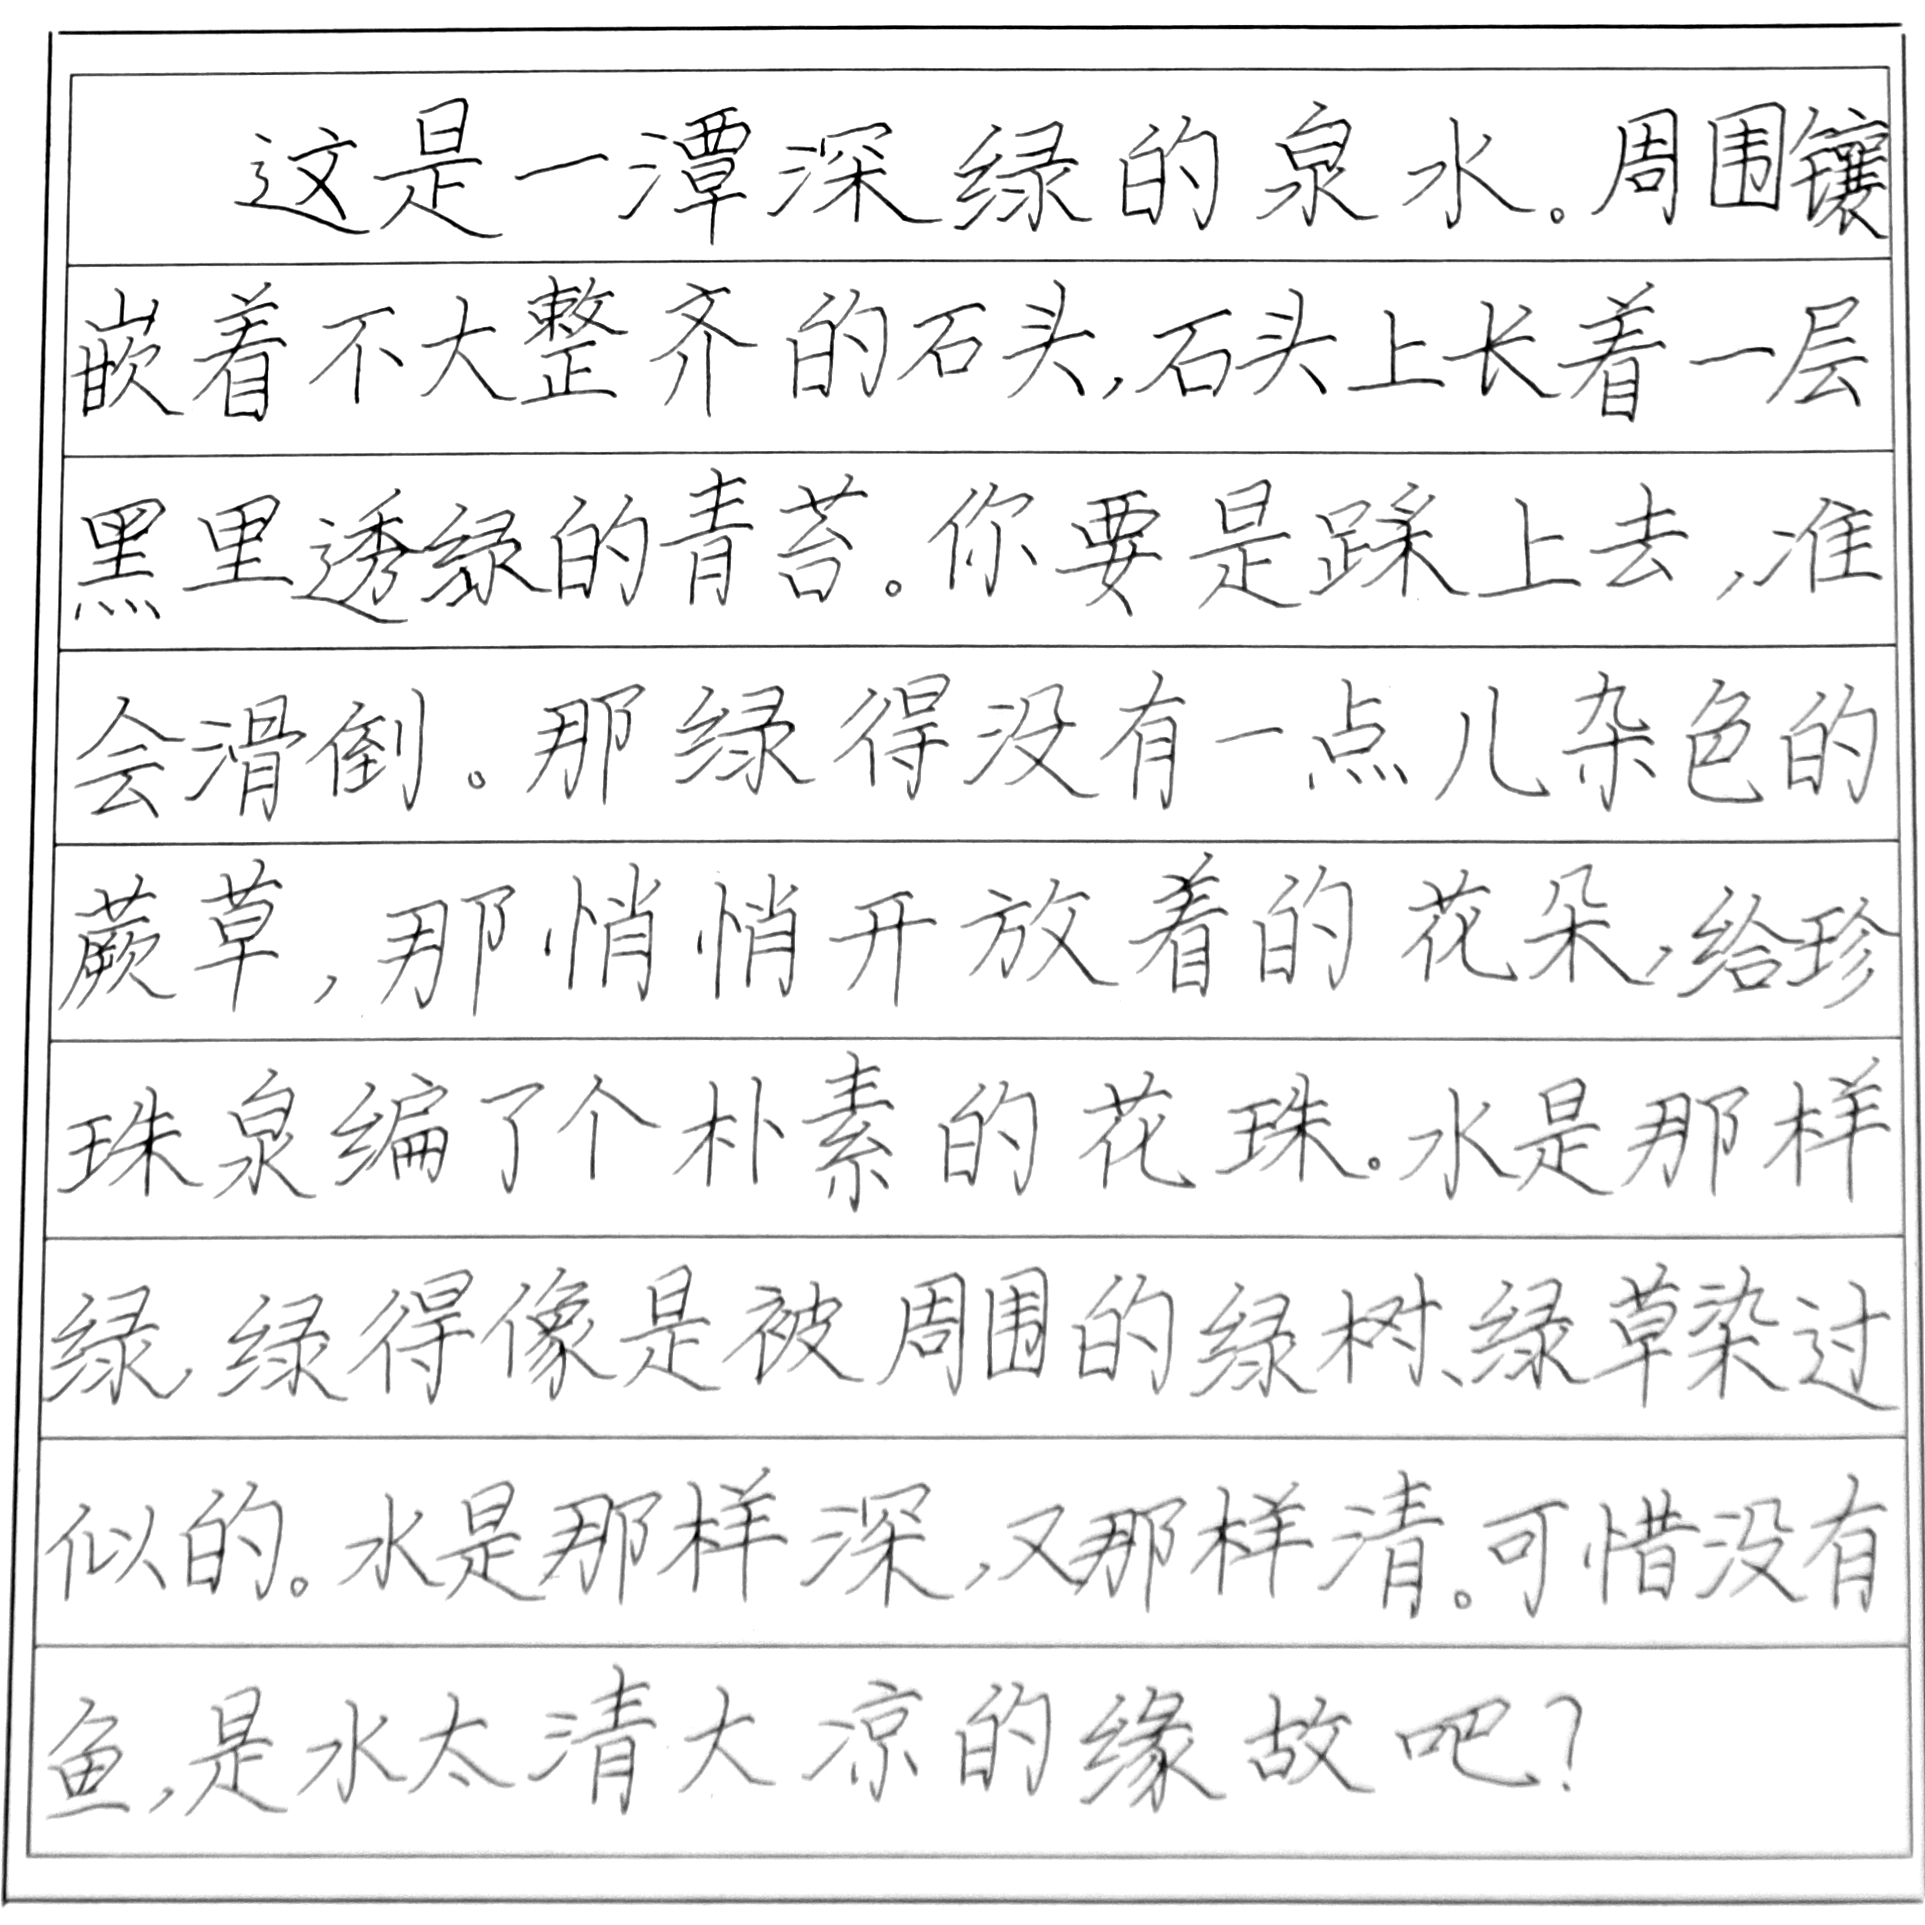 这是一潭深绿的泉水。周围镶
嵌着不大整齐的石头,石头上长着一层
黑里透绿的青苔。你要是踩上去,准
会滑倒。那绿得没有一点儿杂色的
蕨草,那悄悄开放着的花朵,给珍
珠泉编了个朴素的花珠。水是那样
绿,绿得像是被周围的绿树、绿草染过
似的。水是那样深,又那样清。可惜没有
鱼,是水太清大凉的缘故吧?